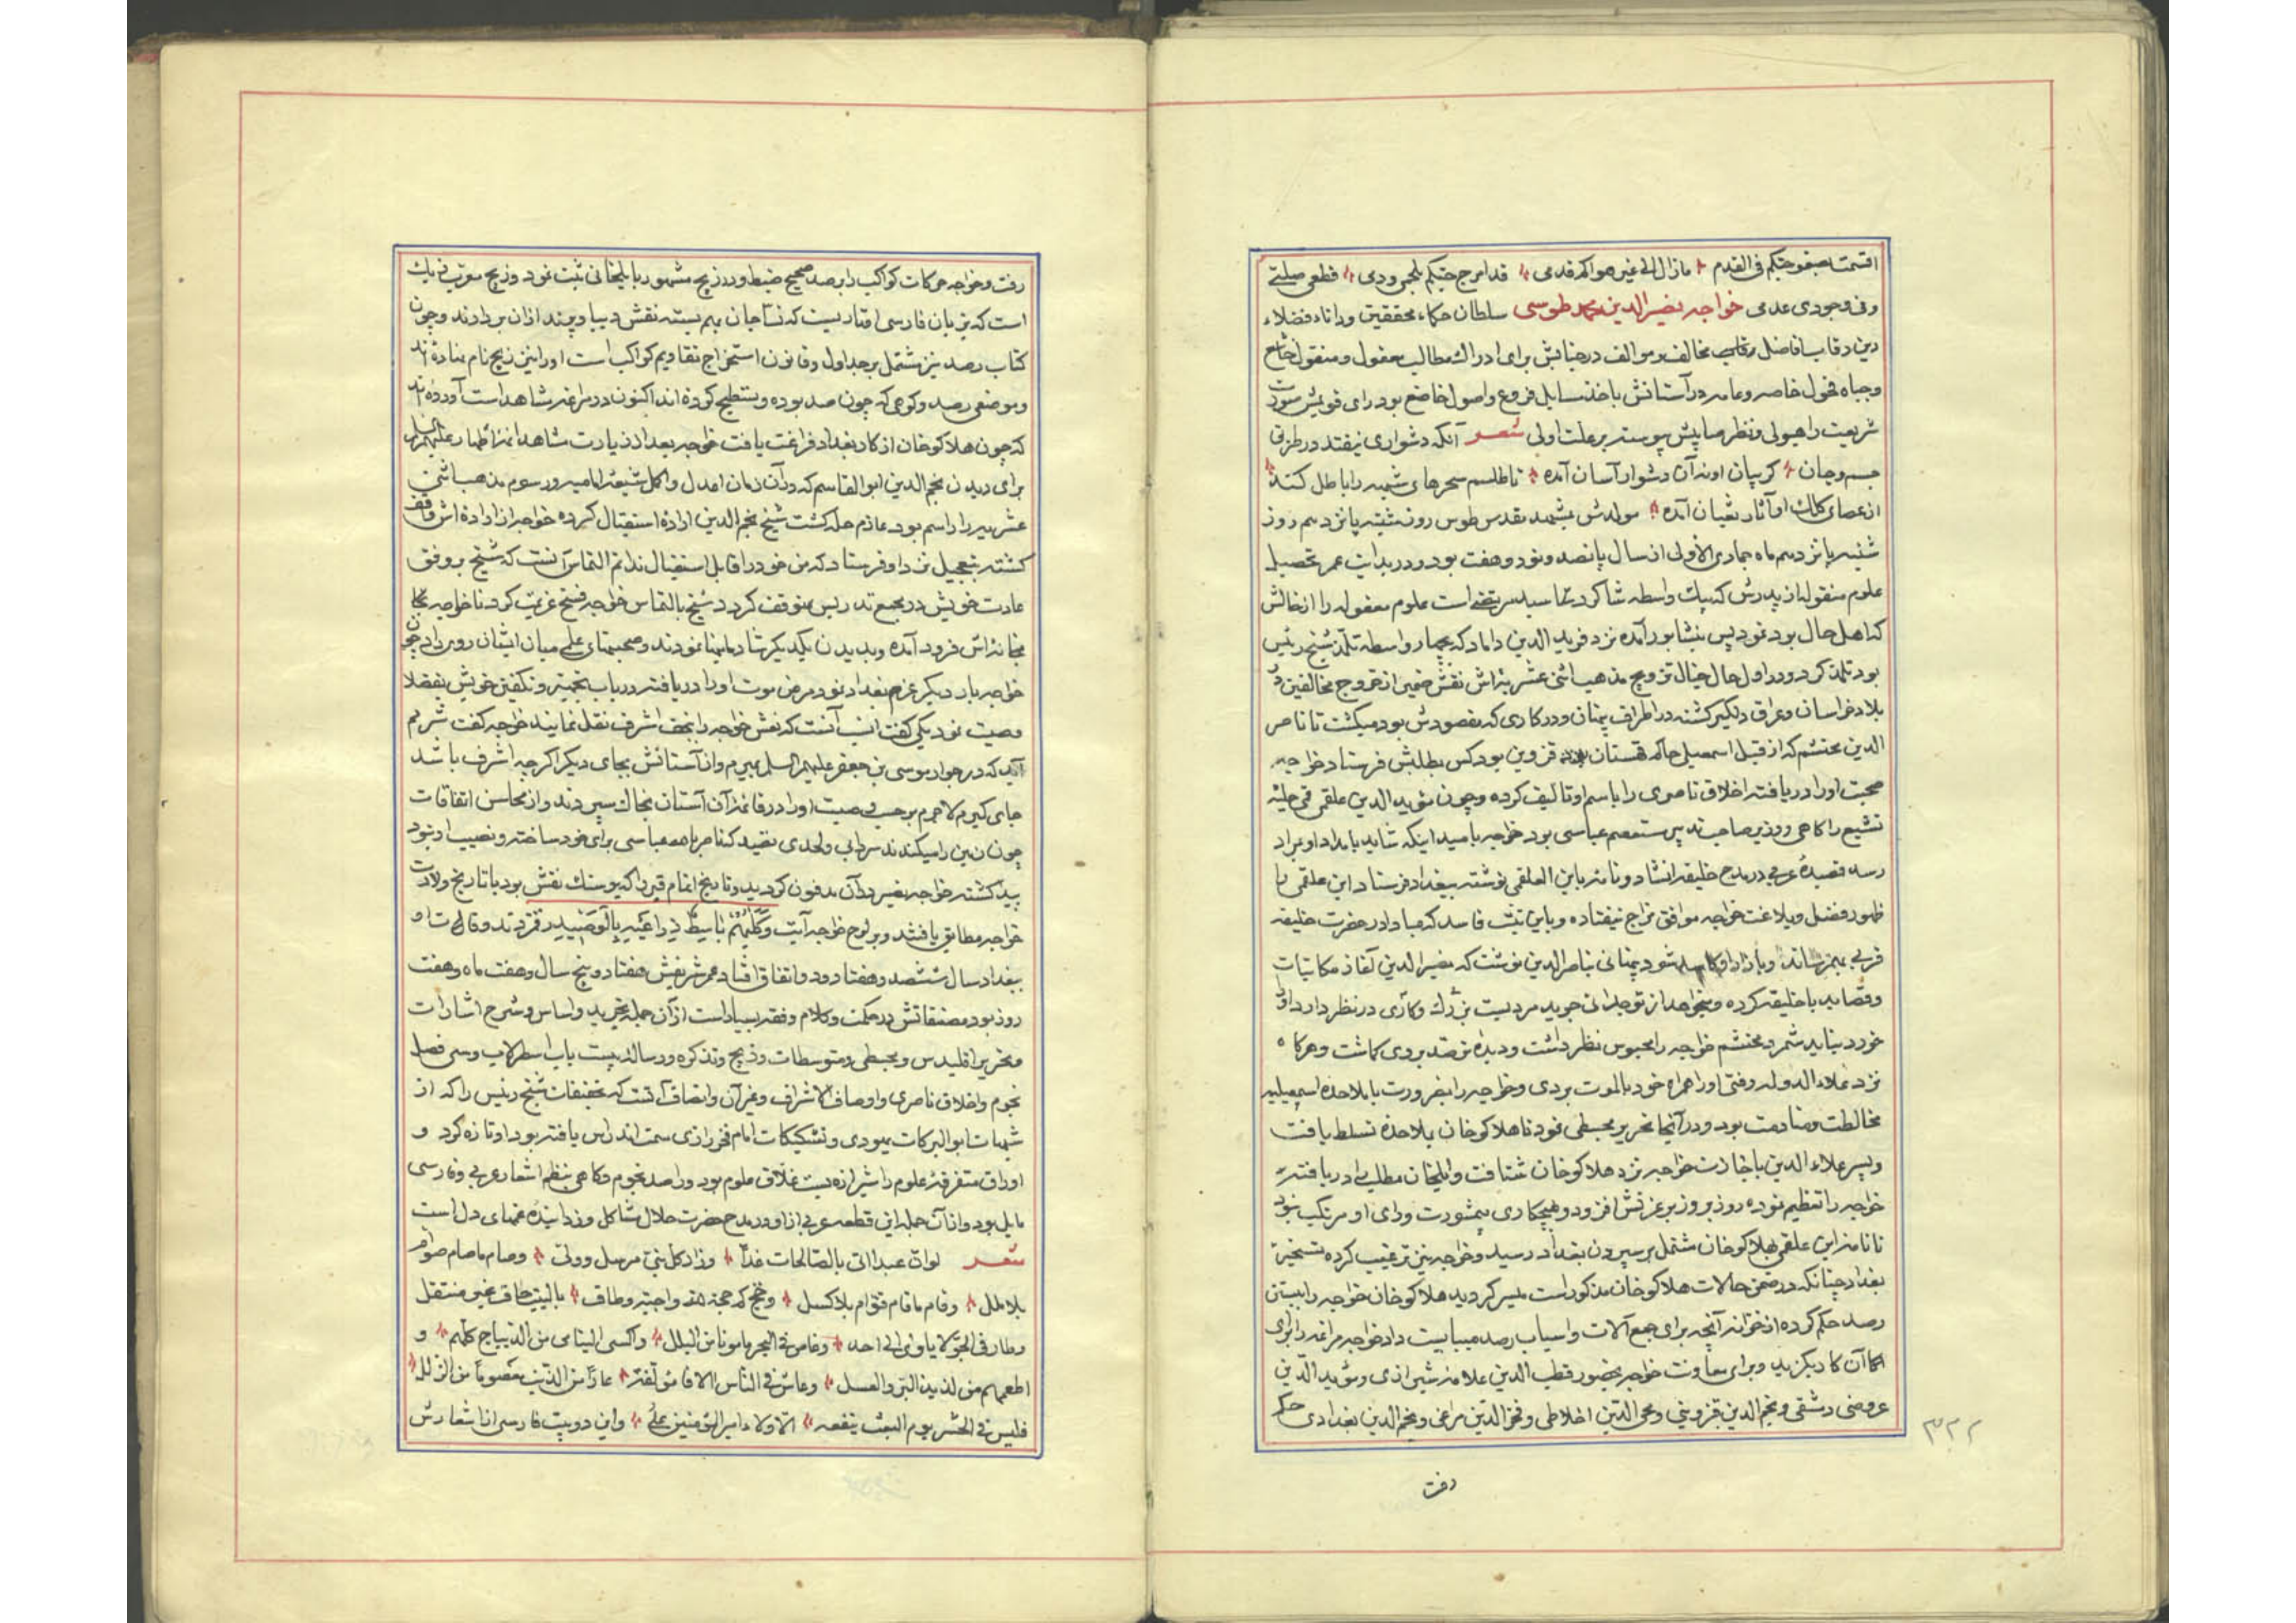 اقسمت بصفو حبکم فی القدم ما زال الی غیر هواکم قدمی قد امزج حبکم بلحمی ودمی قطعی صلتی
وفی وجودی عدمی خواجه نصیر الدین محمد طوسی سلطان حکماء محققین ودانا فضلاء
دین رقاب افاضل مخالف و موالف در جنابش برای ادراک مطالب معقول و منقول خاشع
وجباه فحول خاصه وعامه در آستانش باخذ مسایل فروع واصول خاضع بود رای قویش صورت
شریعت را هیولی ونظر صایبش پیوسته بر علت اولی شعر آنکه دشواری نیفتد در طریق
جسم وجان کز بیان او نه آن دشوار آسان آمده تا طلسم سحرهای شبهه را باطل کند
از عصای کلک او آثار ثعبان آمده مولدش مشهد مقدس طوس روز پانزدهم روز
شنبه پانزدهم ماه جمادی الاولی از سال پانصد ونود وهفت بود ودر بدایت عمر تحصیل
علوم منقوله از پدرش که بیک واسطه شاکرد سید مرتضی است علوم معقوله را از خالش
که اهل حال بود نمود پس بنشابور آمده نزد فرید الدین داماد که بچهار واسطه تلمذ شیخ رئیس
بود تلمذ کرد ودر اول حال خیال ترویج مذهب اثنی عشریه اش نقش ضمیر از خروج مخالفین در
بلاد خراسان وعراق دلکیر کشته در اطراف پنهان ودر کاری که مقصودش بود میکشت تا ناصر
الدین محتشم که از قبل اسمعیل حاکم قهستان قزوین بود کس بطلبش فرستاد خواجه
صحبت او را دریافته اخلاق ناصری را باسم او تالیف کرده وچون مؤید الدین علقمی قمی حلیه
تشیع را کاهی ووزیر صاحب تدبیر مستعصم عباسی بود خواجه بامید اینکه شاید بامداد او بمراد
رسد قصیدهٔ عربی در مدح خلیفه انشاد ونامه باین العلقمی نوشته ببغداد فرستاد ابن علقمی را
ظهور فضل وبلاغت خواجه موافق مزاج نیفتاده وباین نیت فاسد که مبادا در حضرت خلیفه
قربی بهم رساند وبازار او کاسد شود پنهانی بناصر الدین نوشت که نصیر الدین آغاز مکاتبات
وقصاید با خلیفه کرده ومیخواهد از تو جدایی جوید مردیست بزرک وکاری در نظر دارد او را
خورد نباید شمرد محتشم خواجه را محبوس نظر داشت ودیده ترصد بروی کماشت وهرکاه
نزد علاء الدوله رفتی او را همراه خود بالموت بردی وخواجه را بضرورت با ملاحدهٔ اسمعیلیه
مخالطت ومنادمت بود ودر آنجا تحریر مجسطی نمود تا هلاکو خان بملاحده تسلط یافت
وپسر علاء الدین باخیارت خواجه نزد هلاکو خان شتافت وایلخان مطلب او دریافته
خواجه را تعظیم نموده روز بروز بر عزتش افزود وهیچکاری بیمشورت ورای او مرتکب نبود
تا نامه ابن علقمی بهلاکو خان مشتمل بر سپردن بغداد رسید وخواجه نیز ترغیب کرده بتسخیر
بغداد چنانکه در ضمن حالات هلاکو خان مذکور است میسر کردید هلاکو خان خواجه را ببستن
رصد حکم کرده از خزانه آنچه برای جمع آلات واسباب رصد میبایست داد خواجه مراغه را برای
آن کار بکزید وبرای معاونت خواجه بحضور قطب الدین علامه شیرازی ومؤید الدین
عروضی دمشقی ونجم الدین قزوینی ومحی الدین اخلاطی وفخر الدین مراغی ونجم الدین بغدادی حکم
رفت
۳۲۲
رفت وخواجه حرکات کواکب را برصد صحیح ضبط ودر زیج مشهور بایلخانی ثبت نمود وزیج معرب زیک
است که بزبان فارسی افتاریست که نساجان بهم بسته نقش دیبا وپرند از آن بردارند وچون
کتاب رصد نیز مشتمل بر جداول وقانون استخراج تقاویم کواکب است او را نیز زیج نام نهاده اند
وموضعی رصد وکوهی که چون صد بوده وتسطیح کرده اند اکنون در مراغه شاهد است آورده اند
که چون هلاکو خان از کار بغداد فراغت یافت خواجه بعد از زیارت مشاهد ائمهٔ اطهار علیهم السلام
برای دیدن نجم الدین ابو القاسم که در آن زمان اعدل واکمل شیعهٔ امامیه ورسوم مذهب اثنی
عشریه را راسم بود عازم حله کشت شیخ نجم الدین ارادهٔ استقبال کرده خواجه از اراده اش واقف
کشته بتعجیل نزد او فرستاد که من خود را قابل استقبال ندانم التماس آنست که شیخ بر وفق
عادت خویش در مجمع تدریس متوقف کردد شیخ بالتماس خواجه فسخ عزیمت کرد تا خواجه بکا
مخانه اش فرود آمده وبدیدن یکدیکر شادمانیها نمودند وصحبتهای علمی میان ایشان روی داد چون
خواجه بار دیکر عزم بغداد نمود مرض موت او را دریافته در باب تجهیز وتکفین خویش بفضلا
وصیت نمود یکی کفت انسب آنست که نعش خواجه را بنجف اشرف نقل نمایند خواجه کفت شرمم
آید که در جوار موسی بن جعفر علیهم السلم بمیرم واز آستانش بجای دیکر اکرچه اشرف باشد
جای کیرم لاجرم بر حسب وصیت او را در پائین آن آستان بخاک سپردند واز محاسن اتفاقات
چون زمین را میکندند سردابی ولحدی بقید که ناصر بالله عباسی برای خود ساخته ونصیب او نبود
پیدا کشته خواجه نصیر در آن مدفون کردید وتاریخ اتمام قبر را که بر سنک نقش بود با تاریخ ولادت
خواجه مطابق یافتند وبر لوح خواجه آیت وَکَلْبُهُمْ بَاسِطٌ ذِرَاعَیْهِ بِالْوَصِیدِ رقم زدند وفات او
ببغداد سال ششصد وهفتاد ودو واتفاق افتاد عمر شریفش هفتاد وپنج سال وهفت ماه وهفت
روز بود مصنفاتش در حکمت وکلام وفقه بسیار است از آن جمله تجرید واساس وشرح اشارات
وتحریر اقلیدس ومجسطی ومتوسطات وزیج وتذکره ورساله بیست باب اسطرلاب وسی فصل
نجوم واخلاق ناصری واوصاف الاشراف وغیر آن وانصاف آنست که تحقیقات شیخ رئیس را که از
شبهات ابو البرکات یهودی وتشکیکات امام فخر رازی سمت اندراس یافته بود او تازه کرد و
اوراق متفرقهٔ علوم را شیرازه بست غلاق علوم بود وراصد نجوم وکاهی بنظم اشعار عربی وفارسی
مایل بود واز آن جمله این قطعه عربی از او در مدح حضرت حلال مشاکل وزدایندهٔ غمهای دل است
شعر لو ان عبدا اتی بالصالحات غدًا وزار کل نبی مرسل وولی وصام ما صام صوام
بلا ملل وقام ما قام قوام بلا کسل وحج کم حجة لله واجبة وطاف بالبیت طاف غیر منتقل
وطار فی الجو لا یاوی الی احد وغاص فی البحر مامونا من البلل واکسی الیتامی من الدیباج کلهم و
اطعمهم من لذیذ البر والعسل وعاش فی الناس الافا مؤلفة عار من الذنب معصوما من الزلل
فلیس فی الحشر یوم البعث ینفعه الا ولاء امیر المؤمنین علی واین دو بیت فارسی از اشعارش